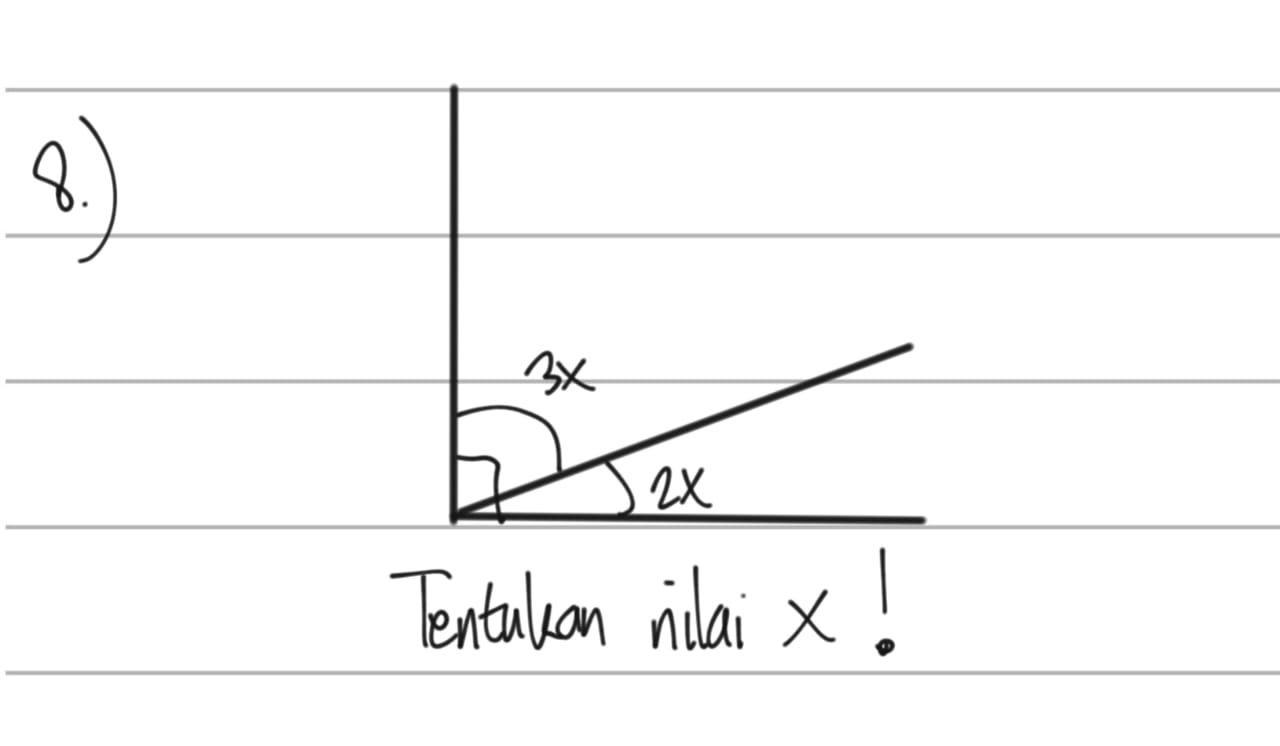 8.)
3x
2x
Tentukan nilai x !